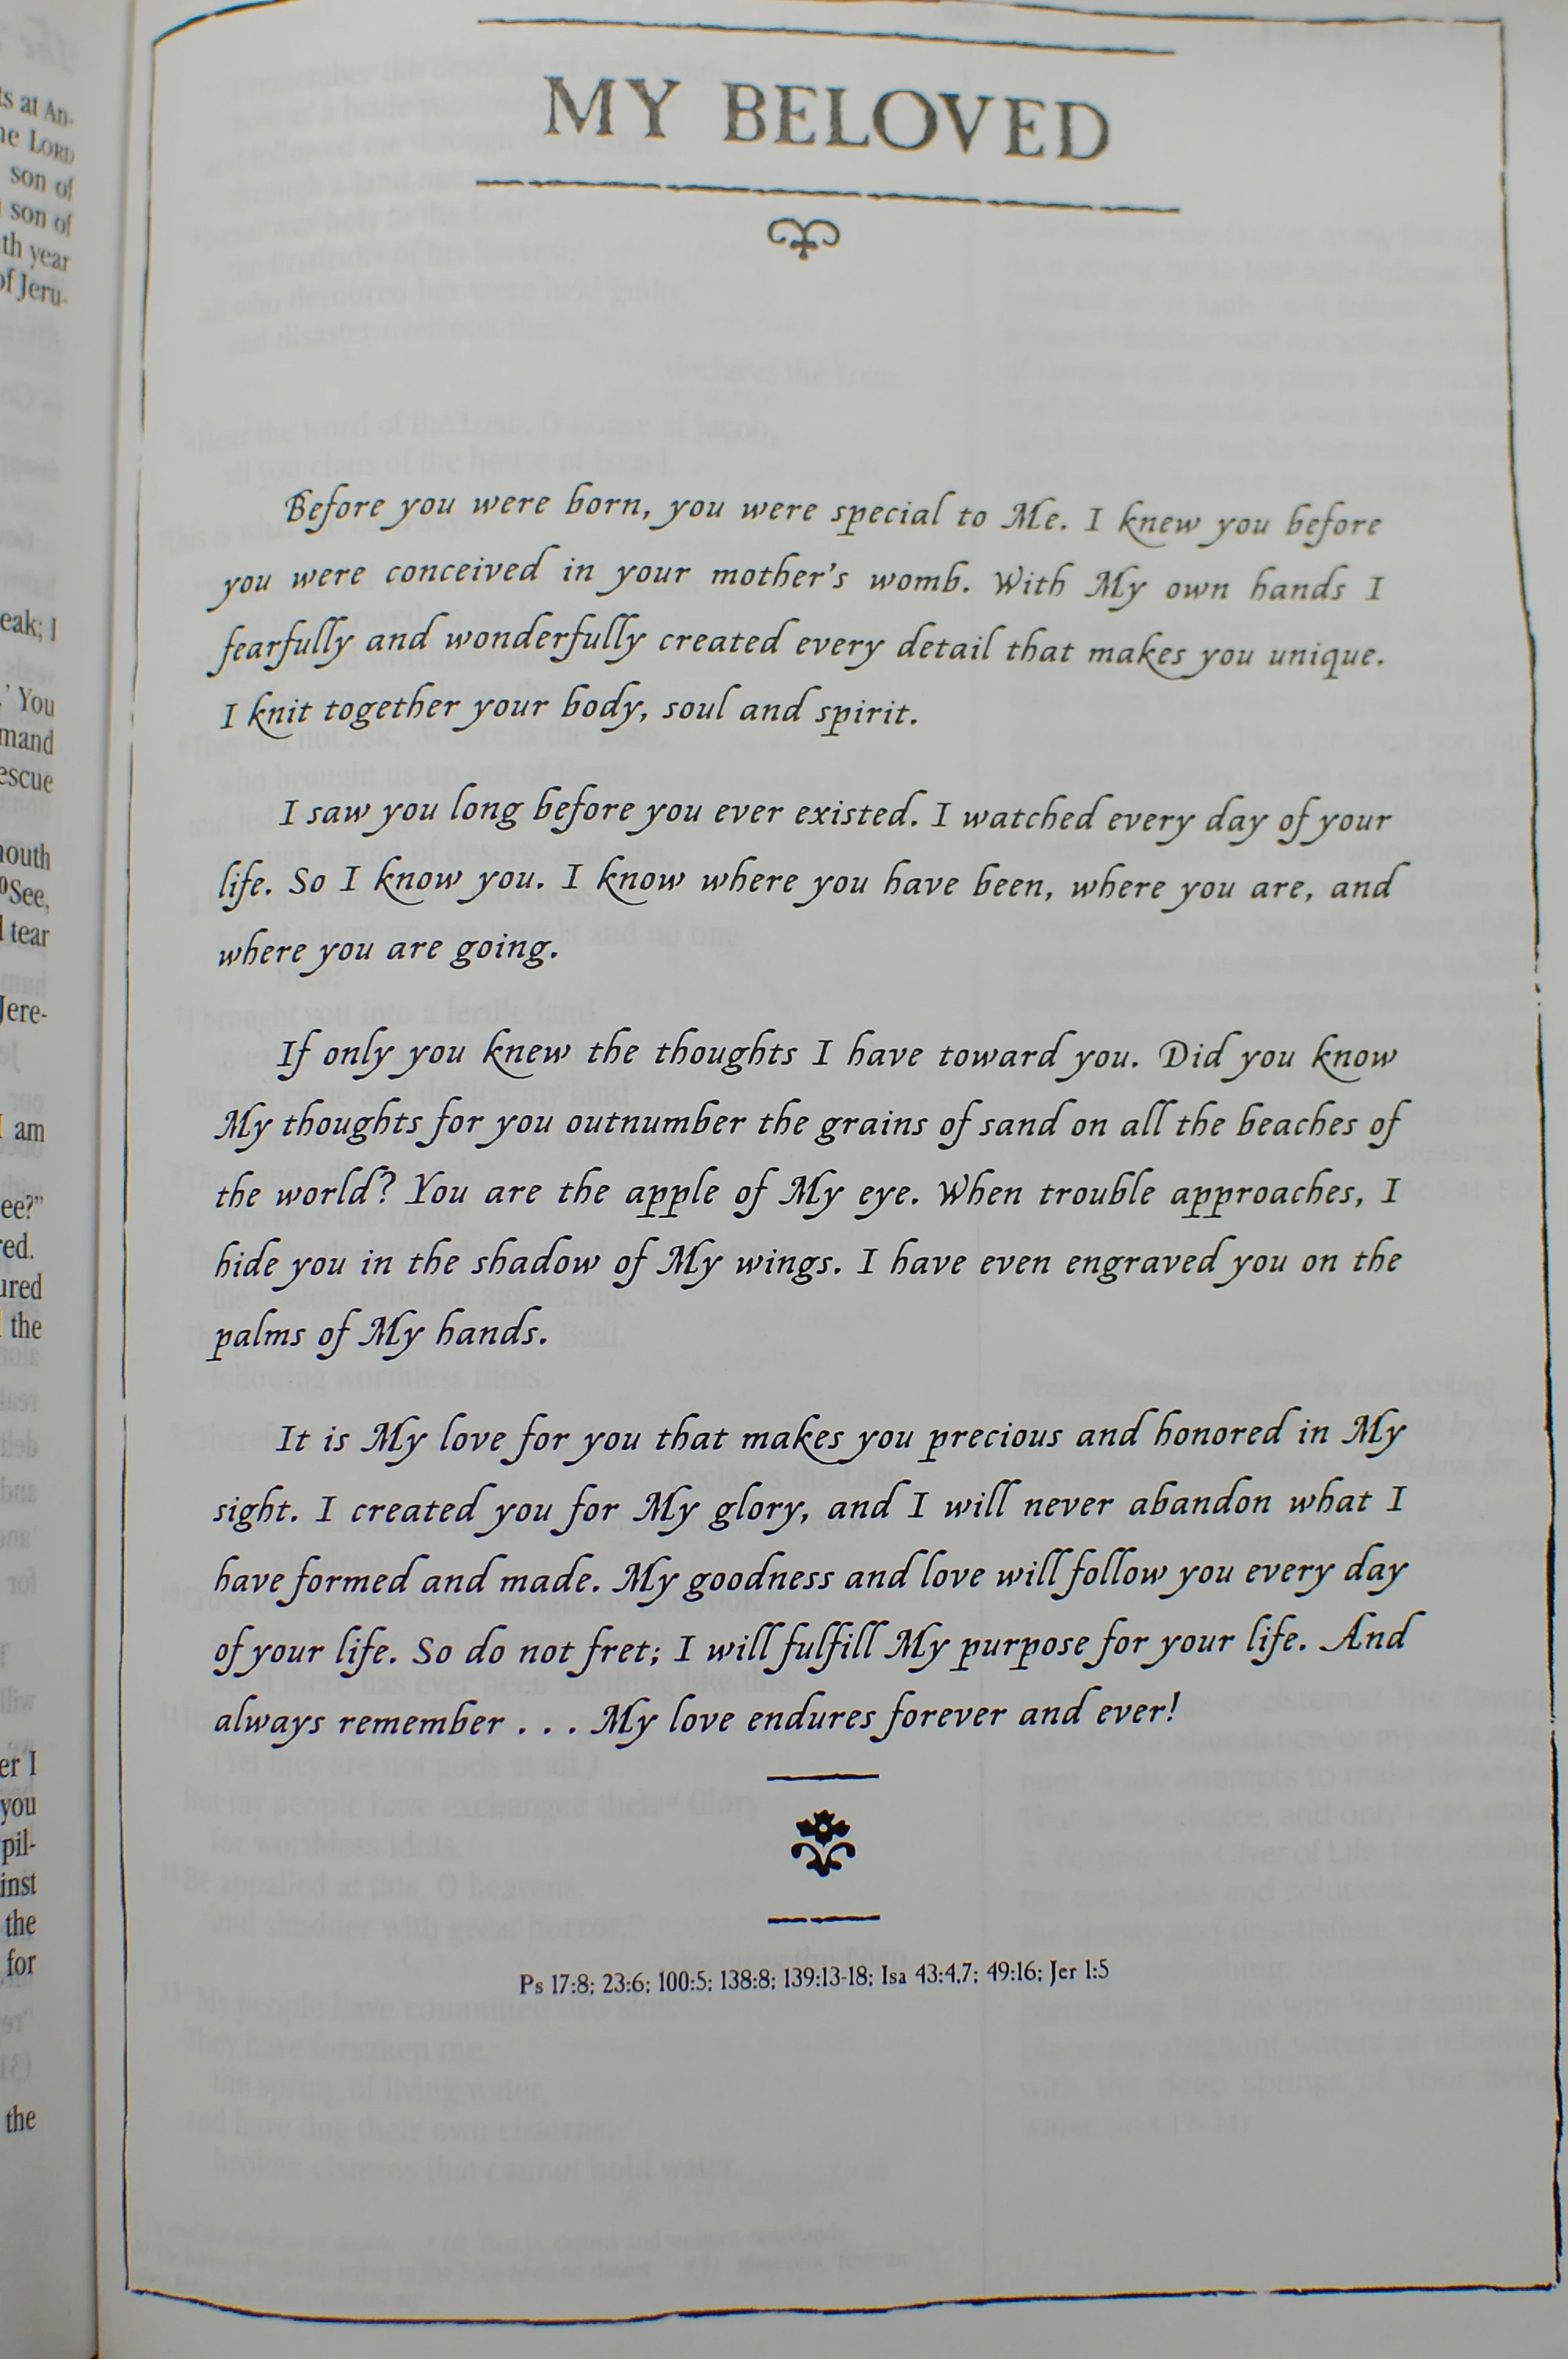 ts at An-
he LORD
son of
son of
th year
of Jeru-
eak; I
You
mand
escue
nouth
See,
tear
Jere-
am
ee?"
red.
ured
the
er I
you
pil-
inst
the
for
the
MY BELOVED
Before you were born, you were special to Me. I knew you before
you were conceived in your mother's womb. With My own hands I
fearfully and wonderfully created every detail that makes you unique.
I knit together your body, soul and spirit.
I saw you long before you ever existed. I watched every day of your
life. So I know you. I know where you have been, where you are, and
where you are going.
If only you knew the thoughts I have toward you. Did you know
My thoughts for you outnumber the grains of sand on all the beaches of
the world? You are the apple of My eye. When trouble approaches, I
hide you in the shadow of My wings. I have even engraved you on the
palms of My hands.
It is My love for you that makes you precious and honored in My
sight. I created you for My glory, and I will never abandon what I
have formed and made. My goodness and love will follow you every day
of your life. So do not fret; I will fulfill My purpose for your life. And
always remember . . . My love endures forever and ever!
Ps 17:8; 23:6; 100:5; 138:8; 139:13-18; Isa 43:4,7; 49:16; Jer 1:5